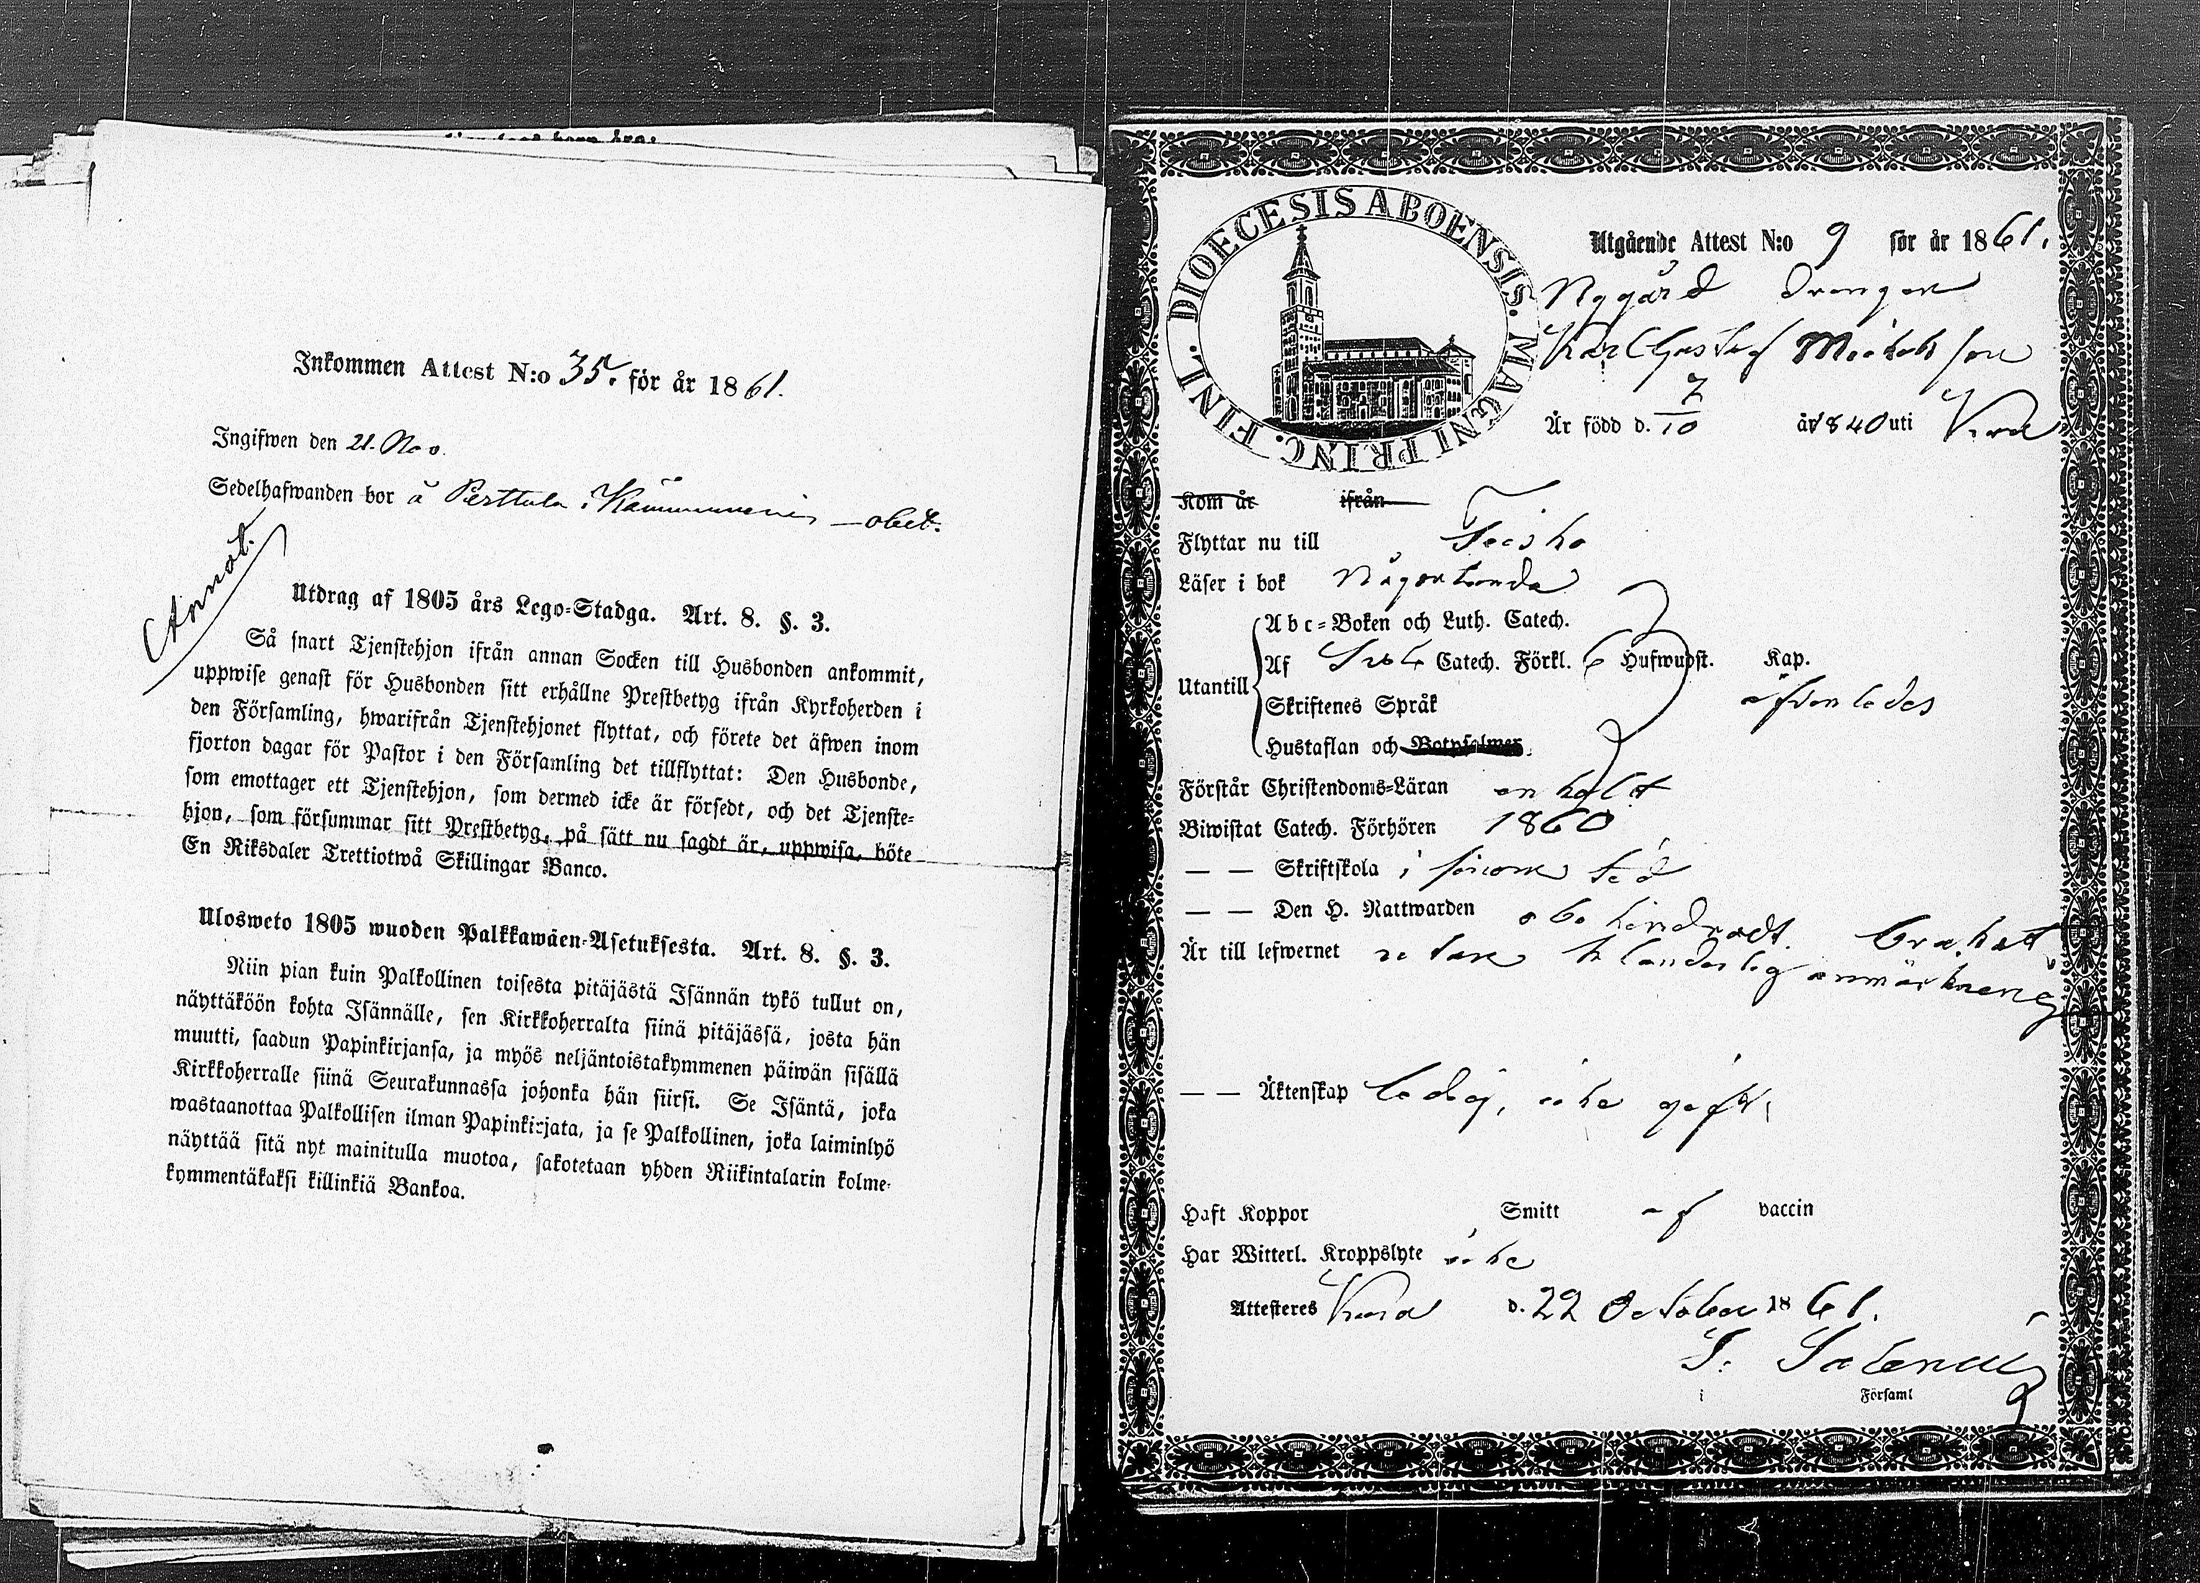 Inkommen Attest N:o 35. för år 1861.
Ingifwen den 21. Nov.
Sedelhafwanden bor å Perttula i
Annot.
Utdrag af 1805 års Lego-Stadga. Art. 8. §. 3.
Så snart Tjenstehjon ifrån annan Socken till Husbonden ankommit,
uppwise genast för Husbonden sitt erhållne Prestbetyg ifrån Kyrkoherden i
den Församling, hwarifrån Tjenstehjonet flyttat, och förete det äfwen inom
fjorton dagar för Pastor i den Församling det tillflyttat: Den Husbonde,
som emottager ett Tjenstehjon, som dermed icke är försedt, och det Tjenste-
hjon, som försummar sitt Prestbetyg, på sätt nu sagdt är, uppwisa, böte
En Riksdaler Trettiotwå Skillingar Banco.
Ulosweto 1805 wuoden Palkkawäen-Asetuksesta. Art. 8. §. 3.
Niin pian kuin Palkollinen toisesta pitäjästä Isännän tykö tullut on,
näyttäköön kohta Isännälle, sen Kirkkoherralta siinä pitäjässä, josta hän
muutti, saadun Papinkirjansa, ja myös neljäntoistakymmenen päiwän sisällä
Kirkkoherralle siinä Seurakunnassa johonka hän siirsi. Se Isäntä, joka
wastaanottaa Palkollisen ilman Papinkirjata, ja se Palkollinen, joka laiminlyö
näyttää sitä nyt mainitulla muotoa, sakotetaan yhden Riikintalarin kolme-
kymmentäkaksi killinkiä Bankoa.
DIOECESIS ABOENSIS. MAGNI PRINC. FINL.
Utgående Attest N:o 9 för år 1861.
Nygård Drengen
Karl Gustaf Michelsson
Är född d. 7/10 år 1840 uti
Kom år ifrån
Flyttar nu till Teisko
Läser i bok någorlunda
Utantill
Abc-Boken och Luth. Catech.
Af Catech. Förkl. 6 Hufwudst. Kap.
Skriftenes Språk äfvenledes
Hustaflan och Botpsalmer.
Förstår Christendoms-Läran enkelt
Biwistat Catech. Förhören 1860
— — Skriftskola i förra tid
— — Den H. Nattwarden obehindradt.
Är till lefwernet utan klanderlig anmärkning
— — Äktenskap ledig, icke gift.
Haft Koppor Smitt af vaccin
Har Witterl. Kroppslyte icke
Attesteres d. 22 October 1861.
i Församl